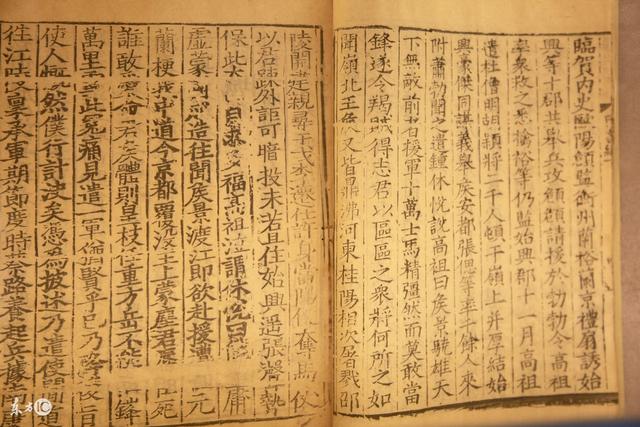 臨賀內史歐陽頠監衡州蘭裕蘭京禮扇誘始
興等十郡共舉兵攻頠頠請援於勃勃令高祖
率衆救之悉擒裕等仍監始興郡十一月高祖
遣杜僧明胡穎將二千人頓于嶺上并厚結始
興豪傑同謀義舉侯安都張偲等率千餘人來
附蕭勃聞之遣鍾休悅說高祖曰侯景驍雄天
下無敵前者援軍十萬士馬精彊然而莫敢當
鋒遂令羯賊得志君以區區之衆將何所之如
聞嶺北王侯又皆鼎沸河東桂陽相次屠戮邵
陵開建親尋干戈李遷仕許身當陽便奪馬仗
以君疎外詎可暗投未若且住始興遥張聲勢
保此太山自求多福高祖泣謂休悅曰僕本庸
虛蒙國成造往聞侯景渡江即欲赴援遭值元
蘭梗我中道今京都覆沒主上蒙塵君辱臣死
誰敢愛命君侯體則皇枝任重方岳不能摧鋒
萬里雪此冤痛見遣一軍猶賢乎已乃降後旨
使人慨然僕行計決矣憑為披述乃遣使間道
往江陵稟承軍期節度時蔡路養起兵據南
东方IC